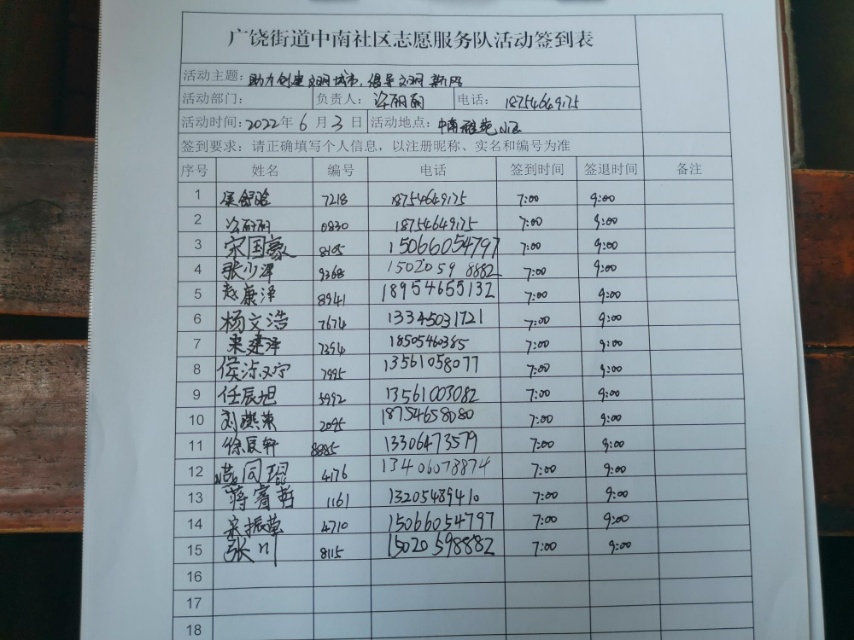 广饶街道中南社区志愿服务队活动签到表
活动主题: 助力创建文明城市,倡导文明新风
活动部门: 负责人: 许丽丽 电话: 18754649175
活动时间:2022年6月3日 活动地点: 中南雅苑小区
签到要求: 请正确填写个人信息,以注册昵称、实名和编号为准
序号 姓名 编号 电话 签到时间 签退时间 备注
1 7218 18754649175 7:00 9:00
2 许丽丽 0830 18754649175 7:00 9:00
3 宋国豪 8105 15066054797 7:00 9:00
4 张少泽 9368 15020598882 7:00 9:00
5 赵康泽 8941 18954655132 7:00 9:00
6 杨文浩 7674 13345031721 7:00 9:00
7 宋建泽 7394 18505460385 7:00 9:00
8 7995 13561058077 7:00 9:00
9 任辰旭 5992 13561003082 7:00 9:00
10 刘燕荣 2095 18754658080 7:00 9:00
11 徐辰轩 8885 13306473579 7:00 9:00
12 4176 13406078874 7:00 9:00
13 蒋睿哲 1161 13205489410 7:00 9:00
14 宋振英 4710 15066054797 7:00 9:00
15 张川 8115 15020598882 7:00 9:00
16
17
18